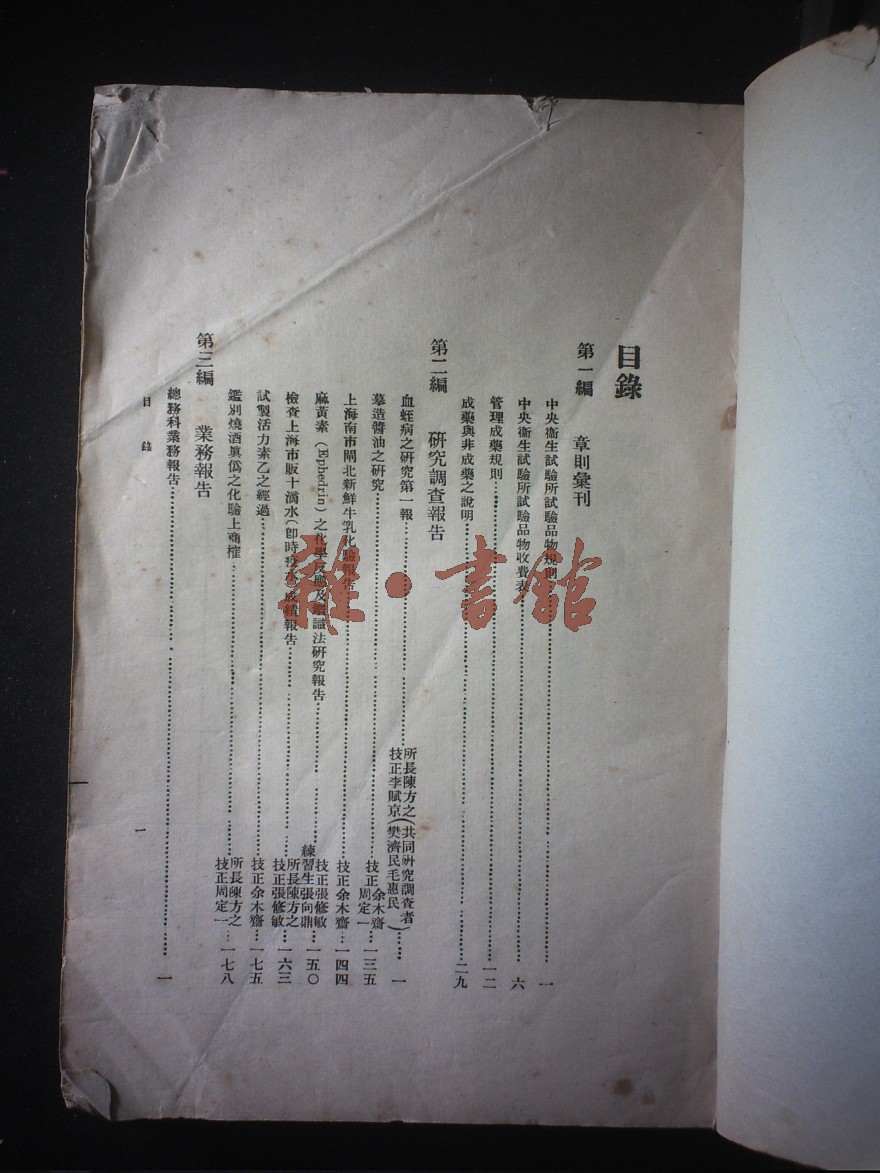 目錄
第一編 章則彙刊
中央衛生試驗所試驗品物規則……一
中央衛生試驗所試驗品物收費表……六
管理成藥規則……一二
成藥與非成藥之說明……二九
第二編 研究調查報告
血蛭病之研究第一報……所長陳方之 技正李賦京(共同研究調查者 樊濟民毛惠民)……一
摹造醬油之研究……技正余木齋 技正周定一…一三五
上海南市閘北新鮮牛乳化驗報告……技正余木齋…一四四
麻黃素(Ephedrin)之化學反應及鑑識法研究報告……技正張修敏 練習生張向鼎…一五〇
檢查上海市販十滴水(卽時疫水)成績報告……所長陳方之 技正張修敏…一六三
試製活力素乙之經過……技正余木齋…一七五
鑑別燒酒眞僞之化驗上商榷……所長陳方之 技正周定一…一七八
第三編 業務報告
總務科業務報告……一
目錄
一
雜·書館